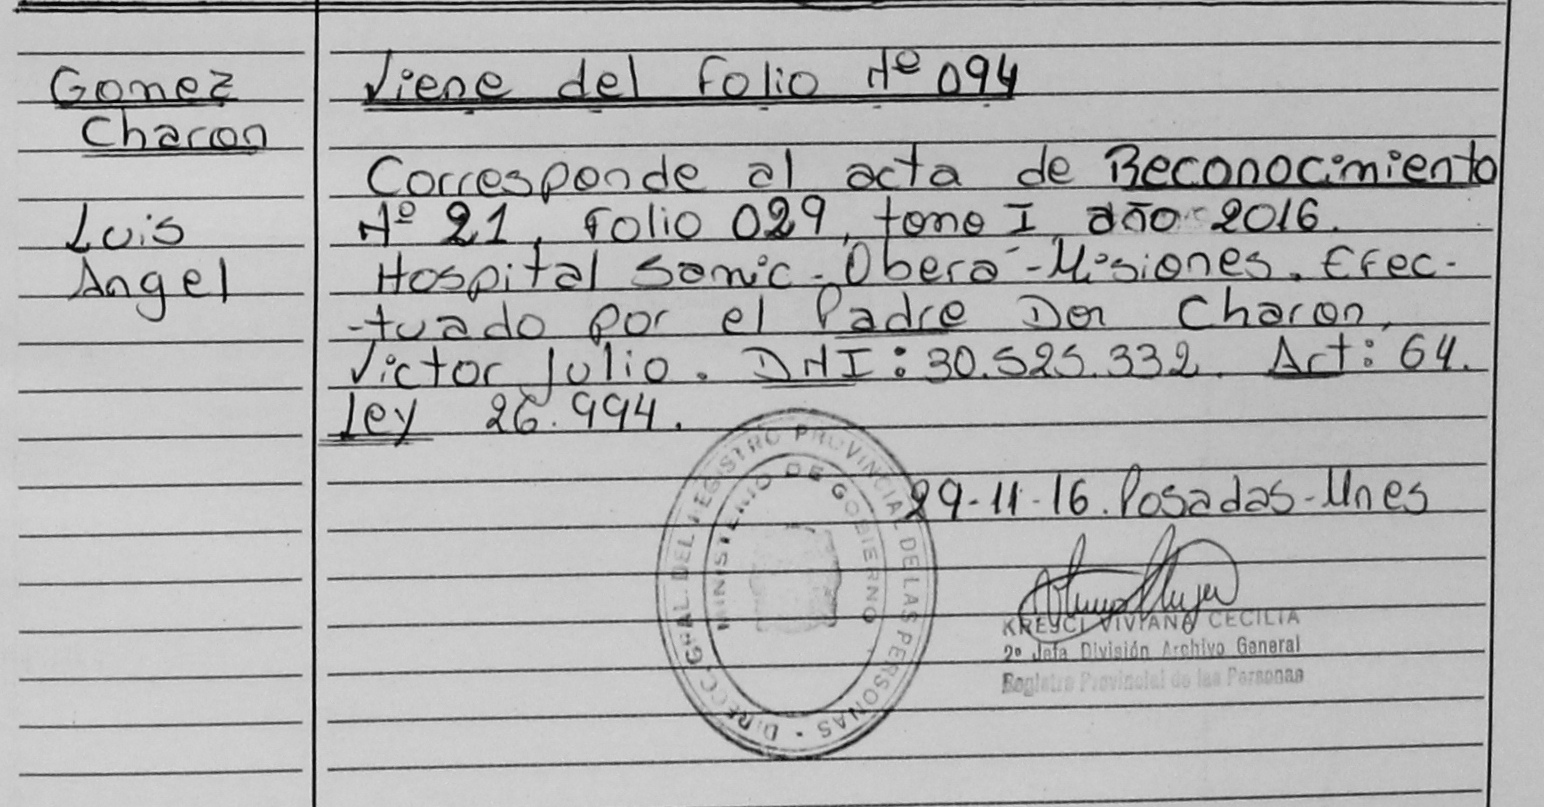 Gomez
Charon
Luis
Angel
Viene del Folio Nº 094
Corresponde al acta de Reconocimiento
Nº 21, Folio 029, tomo I, año 2016.
Hospital Samic-Oberá-Misiones. Efec-
-tuado por el Padre Don Charon,
Victor Julio. DNI: 30.525.332. Act: 64.
Ley 26.994.
29-11-16. Posadas-Mnes
DIRECC. GRAL. DEL REGISTRO PROVINCIAL DE LAS PERSONAS
MINISTERIO DE GOBIERNO
KREYCI VIVIANA CECILIA
2º Jefa División Archivo General
Registro Provincial de las Personas